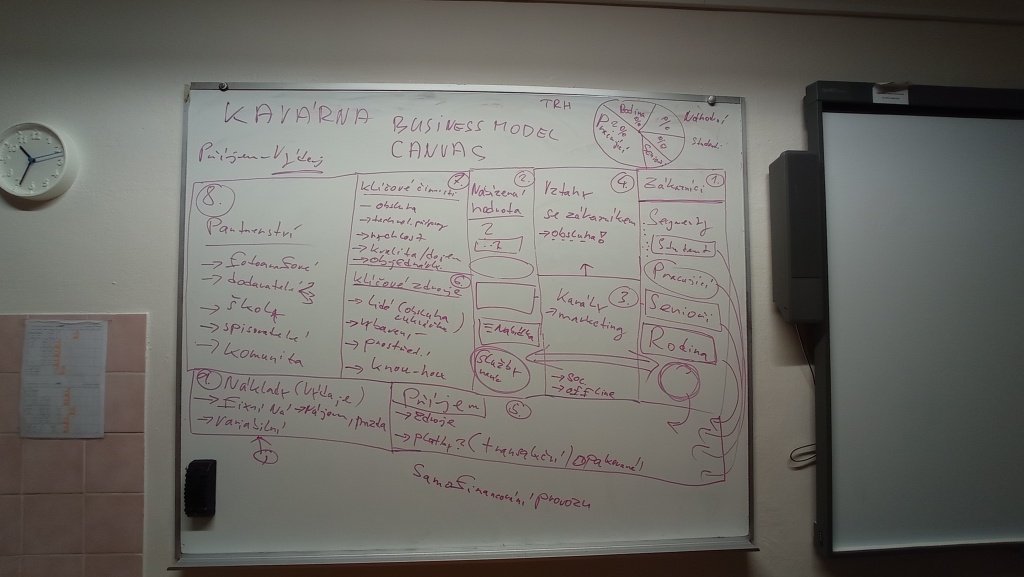 KAVÁRNA
BUSINESS MODEL
CANVAS
TRH
Rodina
Pracující
Náhodní
Studenti
Příjem-Výdej
8.
Partnerství
→ dodavatelé
→ škola
→ spisovatelé
→ komunita
7.
Klíčové činnosti
— obsluha
→ rychlost
→ kvalita/dojem
→ objednávk
6.
Klíčové zdroje
→ lidé (obsluha
cukrářka)
→ vybavení
→ prostředí
→ know-how
2.
Nabízená
hodnota
Nabídka
Služby
4.
Vztahy
se zákazníkem
→ obsluha!
3.
Kanály
→ marketing
→ soc.
→ off-line
1.
Zákazníci
Segmenty
Student
Pracující
Senioři
Rodina
9.
Náklady (Výdaje)
→ Fixní Ná → Nájem, mzda
→ variabilní
5.
Příjem
→ zdroje
→ platby? (transakční) opakované
Samofinancování provozu